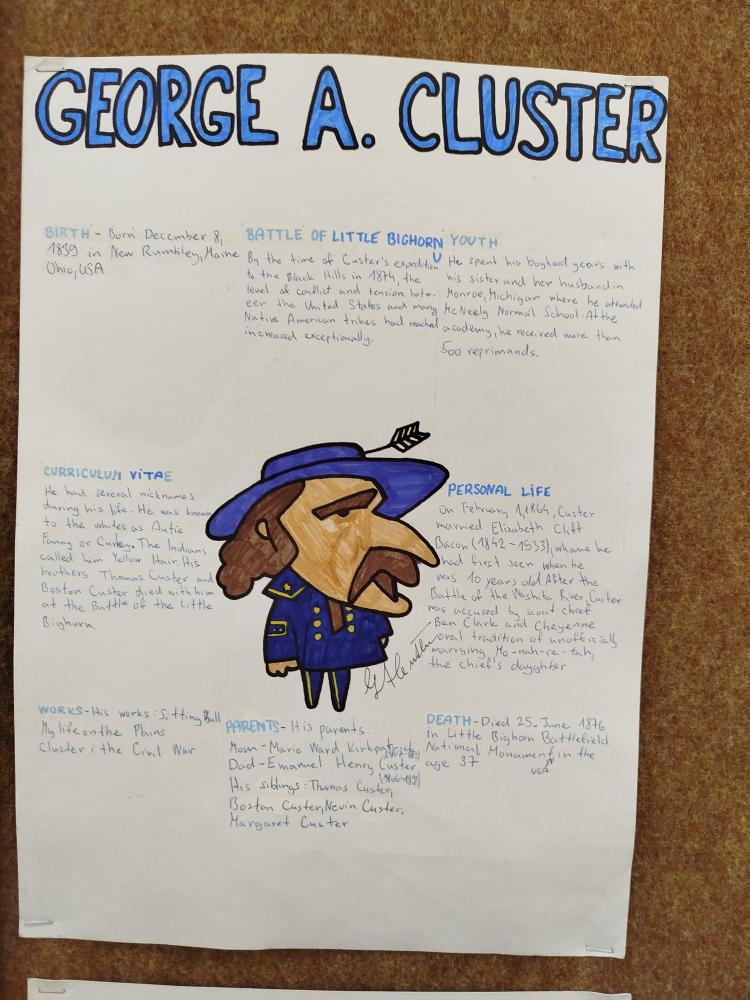 GEORGE A. CLUSTER
BIRTH - Born December 8,
1839 in New Rumbley, Maine
Ohio, USA
BATTLE OF LITTLE BIGHORN
By the time of Custer's expedition
to the Black Hills in 1874, the
level of conflict and tension betw-
eer the United States and many
Native American tribes had reached
increased exceptionally.
YOUTH
He spent his boyhood years with
his sister and her husband in
Monroe, Michigar where he attended
McNeely Normal School. At the
academy, he received more than
500 reprimands.
CURRICULUM VITAE
He had several nicknames
during his life. He was known
to the whites as Autie
Fanny or The Indians
called him Yellow Hair. His
brothers Thomas Custer and
Boston Custer died with him
at the Battle of the Little
Bighorn.
PERSONAL LIFE
On February 1, 1864, Custer
married Elizabeth Clift
Bacon (1842-1933), whome he
had first seen when he
was 10 years old. After the
Battle of the Washita River, Custer
was accused by scout chief
Ben Clark and Cheyenne
oral tradition of unofficially
marrying, Mo-nah-se-tah,
the chief's dayghter
WORKS - His works: Sitting Bull
My life on the Plains
Cluster i the Civil War
PARENTS - His parents...
Mom - Marie Ward Kirkpatrick
Dad - Emanuel Henry Custer
His siblings: Thomas Custer,
Boston Custer, Nevin Custer,
Margaret Custer
DEATH - Died 25. June 1876
in Little Bighorn Battlefield
National Monument in the
USA
age 37